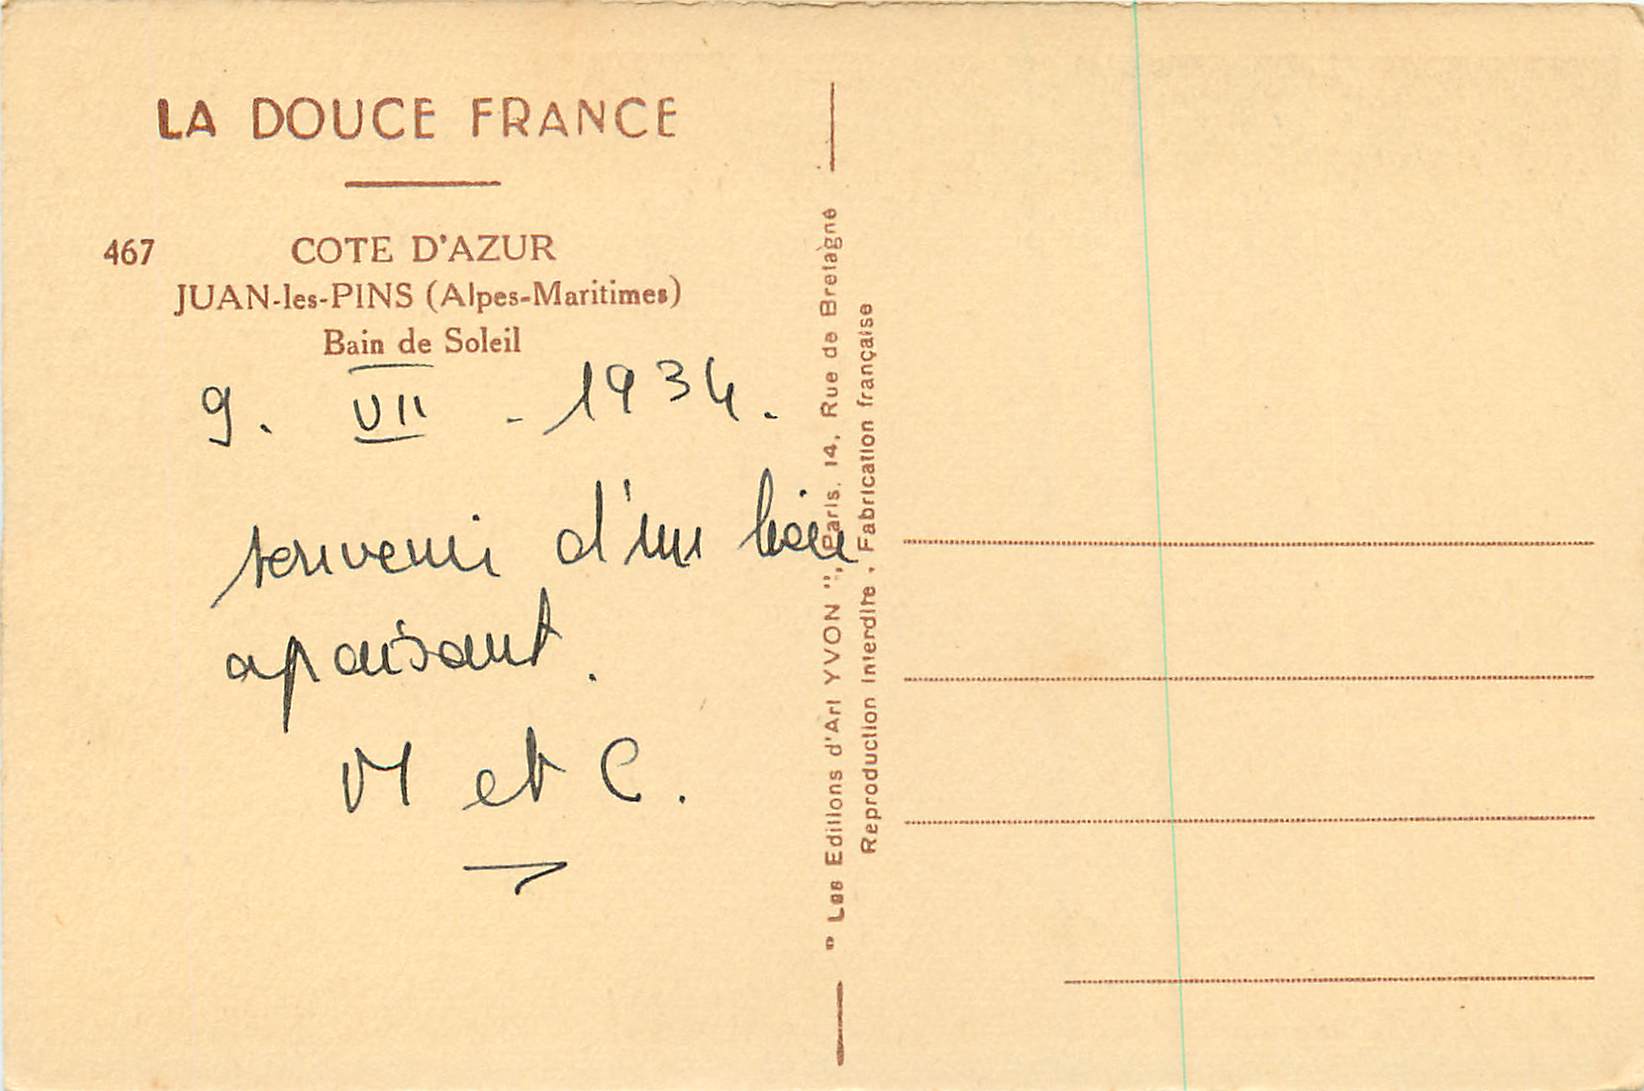 LA DOUCE FRANCE
467 COTE D'AZUR
JUAN-les-PINS (Alpes-Maritimes)
Bain de Soleil
9. VII - 1934.
souvenir d'un
apaisant.
M et C.
"Les Editions d'Art YVON", Paris. 14, Rue de Bretagne
Reproduction Interdite. Fabrication française